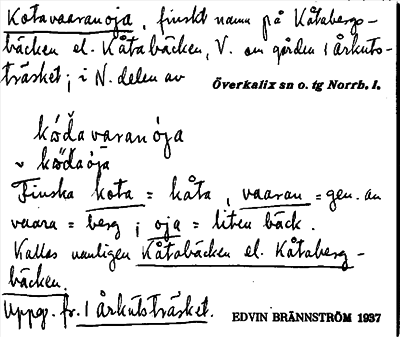 Kotavaaranoja, finskt namn på Kåtabergs-
bäcken el. Kåtabäcken, V. om gården 1 Årkuts-
träsket; i N. delen av Överkalix sn o. tg Norrb. l.
kodavaranoja
v kodaoja
Finska kota = kåta, vaaran = gen. av
vaara = berg; oja = liten bäck.
Kallas vanligen Kåtabäcken el. Kåtaberg-
bäcken.
Uppg. fr. 1 Årkutsträsket. EDVIN BRÄNNSTRÖM 1937